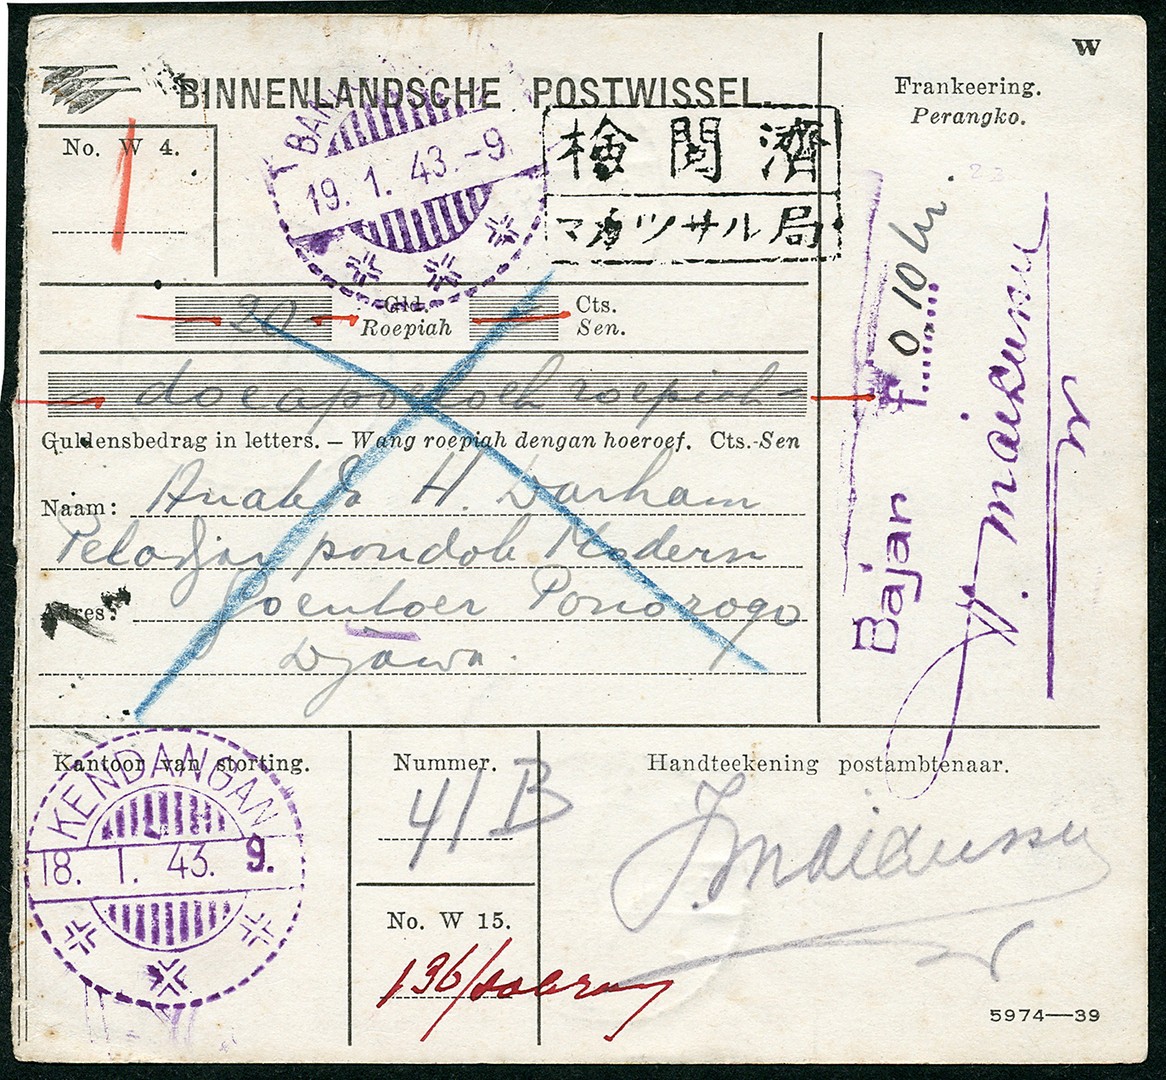 W
BINNENLANDSCHE POSTWISSEL.
Frankeering.
Perangko.
No. W 4.
19. 1. 43.-9.
検閲濟
マカッサル局
20
Gld.
Roepiah
Cts.
Sen.
doeapoeloeh roepiah
Guldensbedrag in letters. – Wang roepiah dengan hoeroef. Cts.-Sen
Naam: H. Darham
Peladjar pondok Modern
Adres: Goentoer Ponorogo
Djawa.
Bajar f 0.10
Kantoor van storting.
KENDANGAN
18. 1. 43. 9.
Nummer.
41 B
No. W 15.
136/
Handteekening postambtenaar.
5974—39